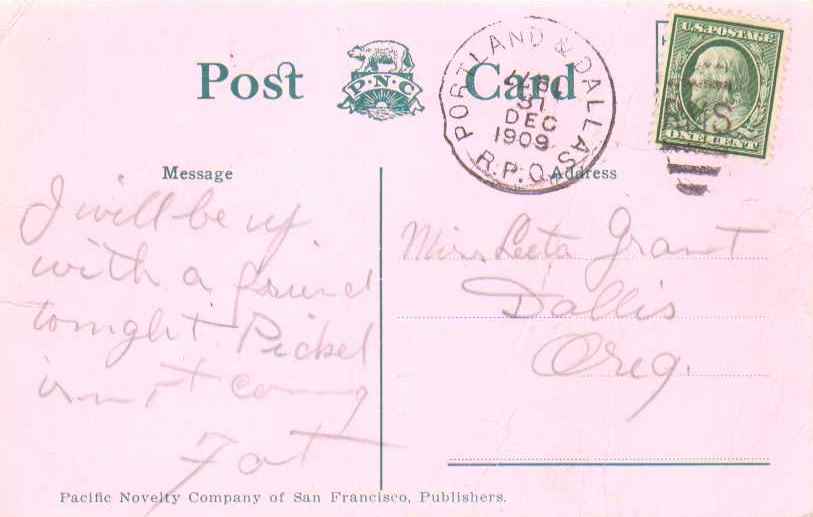 Post Card
P·N·C
PORTLAND & DALLAS
31
DEC
1909
R.P.O.
U.S. POSTAGE
ONE CENT
Message
Address
I will be up
with a friend
tonight Pickel
isn't coming
Fat
Miss Leeta Grant
Dallis
Oreg.
Pacific Novelty Company of San Francisco, Publishers.